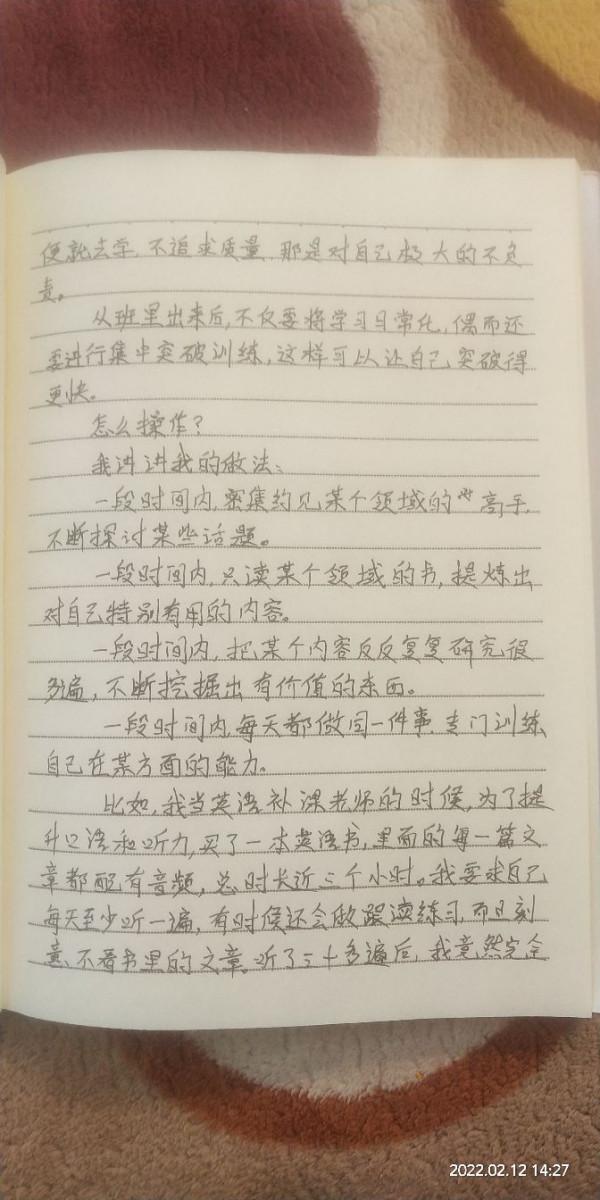 便就去学,不追求质量,那是对自己极大的不负
责。
从班里出来后,不仅要将学习日常化,偶而还
要进行集中突破训练,这样可以让自己突破得
更快。
怎么操作?
我讲讲我的做法:
一段时间内,密集约见某个领域的高手,
不断探讨某些话题。
一段时间内,只读某个领域的书,提炼出
对自己特别有用的内容。
一段时间内,把某个内容反反复复研究很
多遍,不断挖掘出有价值的东西。
一段时间内,每天都做同一件事,专门训练
自己在某方面的能力。
比如,我当英语补课老师的时候,为了提
升口语和听力,买了一本英语书,里面的每一篇文
章都配有音频,总时长近三个小时。我要求自己
每天至少听一遍,有时候还会做跟读练习,而且刻
意不看书里的文章。听了三十多遍后,我竟然完全
2022.02.12 14:27